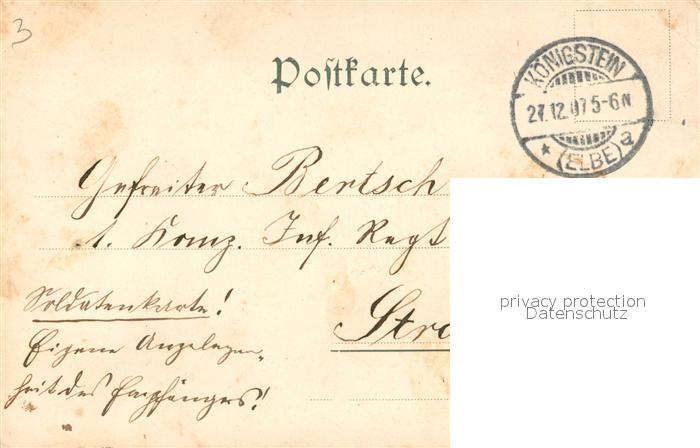 3
Postkarte.
KÖNIGSTEIN
27.12.07 5-6 N
* (ELBE) a
Gefreiter Bertsch
1. Komp. Inf. Regt
privacy protection
Datenschutz
Soldatenkarte!
Stra
Eigene Angelegen-
heit des Empfängers!